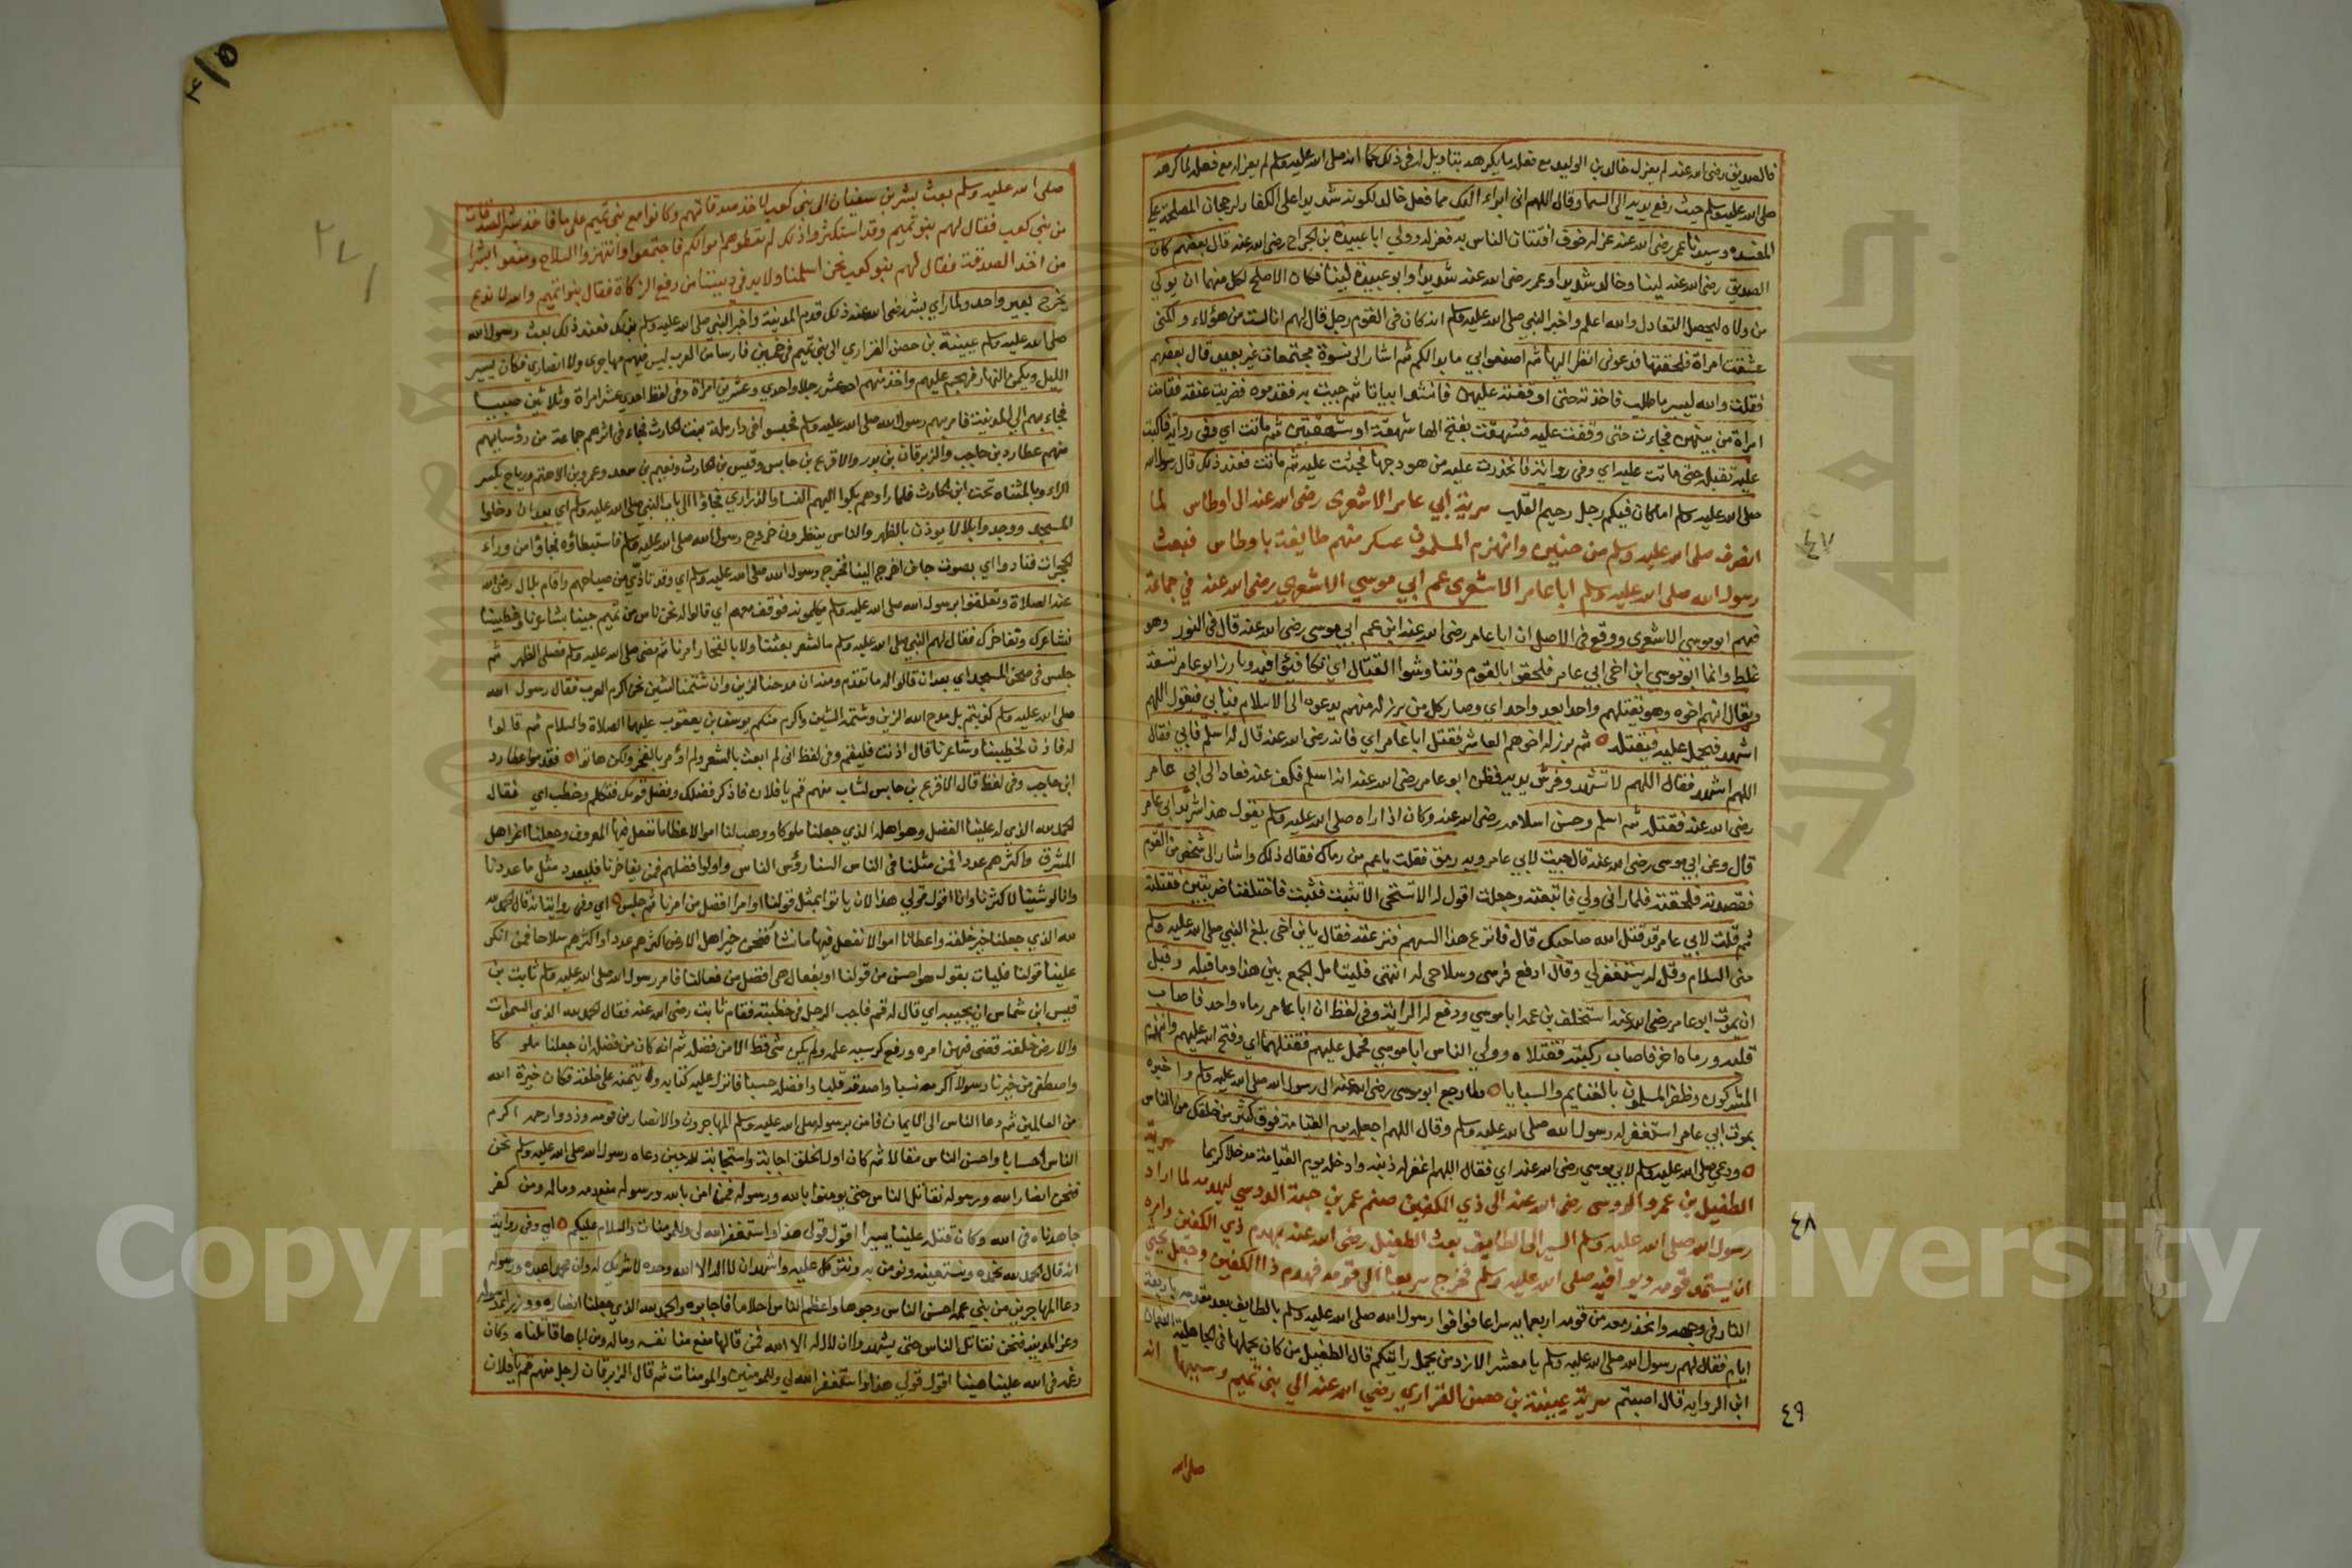 فالصديق رضي الله عنه لم يعزل خالد بن الوليد مع فعله ما يكرهه بتاويل له في ذلك كما انه صلى الله عليه وسلم لم يعزله مع فعله لما كرهه
صلى الله عليه وسلم حيث رفع يديه الى السما وقال اللهم اني ابراء اليك مما فعل خالد لكونه شديدا على الكفار لرجحان المصلحة على
المفسده وسيدنا عمر رضي الله عنه عزله خوف افتتان الناس به فعزله وولي ابا عبيدة بن الجراح رضي الله عنه قال بعضهم كان
الصديق رضي الله عنه لينا وخالد شديدا وعمر رضي الله عنه شديدا وابو عبيدة لينا فكان الاصلح لكل منهما ان يولي
من ولاه ليحصل التعادل والله اعلم واخبر النبي صلى الله عليه وسلم انه كان في القوم رجل قال لهم انا لست من هؤلاء ولكني
عشقت امراة فلحقتها فدعوني انظر اليها ثم اصنعوا بي ما بدا لكم ثم اشار الى نسوة مجتمعات غير بعيد قال بعضهم
فقلت والله ليسير ما طلب فاخذته حتى اوقفته عليهن فانشد ابياتا ثم جيت به فقدموه فضربت عنقه فقامت
امراة من بينهن فجاءت حتى وقفت عليه فشهقت بفتح الها شهقة او شهقتين ثم ماتت اي وفي رواية فاكبت
عليه تقبله حتى ماتت عليه اي وفي رواية فانحدرت عليه من هودجها فجثت عليه ثم ماتت فعند ذلك قال رسول الله
صلى الله عليه وسلم اما كان فيكم رجل رحيم القلب سرية ابي عامر الاشعرى رضي الله عنه الى اوطاس لما
انصرف صلى الله عليه وسلم من حنين وانهزم المسلمون عسكر منهم طايفة باوطاس فبعث
رسول الله صلى الله عليه وسلم ابا عامر الاشعرى عم ابي موسي الاشعري رضي الله عنه في جماعة
فيهم ابو موسى الاشعرى ووقع في الاصل ان ابا عامر رضي الله عنه ابن عم ابي موسى رضي الله عنه قال في النور وهو
غلط وانما ابو موسي ابن اخي ابي عامر فلحقوا بالقوم وتناوشوا القتال اي تكافيؤا فيه وبارز ابو عامر تسعة
ويقال انهم اخوه وهو يقتلهم واحدا بعد واحد اي وصار كل من برز له منهم يدعوه الى الاسلام فيابي فيقول اللهم
اشهد فيحمل عليه فيقتله ثم برز له اخوهم العاشر فقتل ابا عامر اي فانه رضي الله عنه قال له اسلم فابي فقال
اللهم اشهد فقال اللهم لا تشهد وفرش يديه فظن ابو عامر رضي الله عنه انه اسلم فكف عنه فعاد الى ابي عامر
رضي الله عنه فقتله ثم اسلم وحسن اسلامه رضي الله عنه وكان اذا راه صلى الله عليه وسلم يقول هذا شريد ابي عامر
قال وعن ابي موسى رضي الله عنه قال جيت لابي عامر وبه رمق فقلت يا عم من رماك فقال ذلك واشار الى شخص من القوم
فقصدته فلحقته فلما راني ولي فاتبعته وجعلت اقول له الا تستحي الا تثبت فثبت فاختلفنا ضربتين فقتلته
ثم قلت لابي عامر قد قتل الله صاحبك قال فانزع هذا السهم فنزعته فقال يا بن اخي بلغ النبي صلى الله عليه وسلم
مني السلام وقل له يستغفر لي وقال ادفع فرسي وسلاحي له انتهى فليتامل الجمع بين هذا وما قبله وقبل
ان يموت ابو عامر رضي الله عنه استخلف بن عمه ابا موسي ودفع له الراية وفي لفظ ان ابا عامر رماه واحد فاصاب
قلبه ورماه اخر فاصاب ركبته فقتلاه وولي الناس ابا موسي فحمل عليهم فقتلهما اي وفتح الله عليهم وانهزم
المشركون وظفر المسلمون بالغنايم والسبايا ولما رجع ابو موسى رضي الله عنه الى رسول الله صلى الله عليه وسلم واخبره
بموت ابي عامر استغفر له رسول الله صلى الله عليه وسلم وقال اللهم اجعله يوم القيامة فوق كثير من خلقك من الناس
ودعي صلى الله عليه وسلم لابي موسي رضي الله عنه اي فقال اللهم اغفر له ذنبه وادخله يوم القيامة مدخلا كريما سرية
الطفيل بن عمرو الدوسى رضي الله عنه الى ذي الكفين صنم عمر بن حممة الدوسي ليهدمه لما اراد
رسول الله صلى الله عليه وسلم السير الى الطايف بعث الطفيل رضي الله عنه يهدم ذي الكفين وامره
ان يستمد قومه ويوافيه صلى الله عليه وسلم فخرج سريعا الى قومه فهدم ذا الكفين وجعل يحثي
النار في وجهه وانحدر معه من قومه اربعمايه سراعا فوافوا رسول الله صلى الله عليه وسلم بالطايف بعد مقدمه باربعة
ايام فقال لهم رسول الله صلى الله عليه وسلم يا معشر الازد من يحمل رايتكم قال الطفيل من كان يحملها في الجاهلية النعمان
ابن الراويه قال اصبتم سرية عيينة بن حصن الفزاري رضي الله عنه الي بني تميم وسببها انه
صلى الله
٤٧
٤٨
٤٩
صلى الله عليه وسلم بعث بشر بن سفيان الى بني كعب لاخذ صدقاتهم وكانوا مع بني تميم على ما فاخذ بشر الصدقات
من بني كعب فقال لهم بنو تميم وقد استكثروا ذلك لم تعطوهم اموالكم فاجتمعوا وانتهزوا السلاح ومنعوا بشرا
من اخذ الصدقة فقال لهم بنو كعب نحن اسلمنا ولابد في ديننا من دفع الزكاة فقال بنو تميم والله لا ندع
يخرج بعير واحد ولما راي بشر رضي الله عنه ذلك قدم المدينة واخبر النبي صلى الله عليه وسلم بذلك فعند ذلك بعث رسول الله
صلى الله عليه وسلم عيينة بن حصن الفزاري الى بني تميم في خمسين فارسا من العرب ليس فيهم مهاجري ولا انصاري فكان يسير
الليل ويكمن النهار فهجم عليهم واخذ منهم احد عشر رجلا واحدي وعشرين امراة وفي لفظ احدي عشر امراة وثلاثين صبيا
فجاء بهم الي المدينة فامر بهم رسول الله صلى الله عليه وسلم فحبسوا في دار رملة بنت الحارث فجاء في اثرهم جماعة من رؤسايهم
منهم عطارد بن حاجب والزبرقان بن بدر والاقرع بن حابس وقيس بن الحارث ونعيم بن سعد وعمرو بن الاهتم ورباح بكسر
الراء وبالمثناه تحت ابن الحارث فلما راوهم بكوا اليهم النسا والذراري فجاؤا الى باب النبي صلى الله عليه وسلم اي بعد ان دخلوا
المسجد ووجدوا بلالا يوذن بالظهر والناس ينتظرون خروج رسول الله صلى الله عليه وسلم فاستبطاؤه فجاؤا من وراء
الحجرات فنادوا اي بصوت جاف اخرج الينا فخرج رسول الله صلى الله عليه وسلم اي وقد تاذي من صياحهم واقام بلال رضي الله
عنه الصلاة وتعلقوا برسول الله صلى الله عليه وسلم يكلمونه فوقف معهم اي قالوا له نحن ناس من تميم جينا بشاعرنا وخطيبنا
نشاعرك ونفاخرك فقال لهم النبي صلى الله عليه وسلم ما بالشعر بعثنا ولا بالفخار امرنا ثم مضى صلى الله عليه وسلم فصلى الظهر ثم
جلس في صحن المسجد اي بعد ان قالوا له ما تقدم ومنه ان مدحنا لزين وان شتمنا لشين نحن اكرم العرب فقال رسول الله
صلى الله عليه وسلم كذبتم بل مدح الله الزين وشتمه الشين واكرم منكم يوسف بن يعقوب عليهما الصلاة والسلام ثم قالوا
له فاذن لخطيبنا وشاعرنا قال اذنت فليقم وفي لفظ اني لم ابعث بالشعر ولم اؤمر بالفخر ولكن هاتوا فقدموا عطارد
ابن حاجب وفي لفظ قال الاقرع بن حابس لشاب منهم قم يا فلان فاذكر فضلك وفضل قومك فتكلم وخطب اي فقال
الحمد لله الذي له علينا الفضل وهو اهله الذي جعلنا ملوكا ووهب لنا اموالا عظاما نفعل فيها المعروف وجعلنا اعز اهل
المشرق واكثرهم عددا فمن مثلنا في الناس السنا رؤس الناس واولوا فضلهم فمن يفاخرنا فليعدد مثل ما عددنا
وانا لو شينا لاكثرنا وانا اقول قولي هذا لان ياتوا بمثل قولنا او امرا افضل من امرنا ثم جلس اي وفي رواية انه قال الحمد لله
لله الذي جعلنا خير خلقه واعطانا اموالا نفعل فيها ما نشا فنحن خير اهل الارض اكثرهم عددا واكثرهم سلاحا فمن انكر
علينا قولنا فليات بقول هو احسن من قولنا او بفعال هي افضل من فعالنا فامر رسول الله صلى الله عليه وسلم ثابت بن
قيس ابن شماس ان يجيبه اي قال له قم فاجب الرجل في خطبته فقام ثابت رضي الله عنه فقال الحمد لله الذي السموات
والارض خلقه قضى فيهن امره ووسع كرسيه علمه ولم يكن شي قط الا من فضله ثم انه كان من فضله ان جعلنا ملوكا
واصطفى من خيرنا رسولا اكرمه نسبا واصدقه قلبا وافضله حسبا فانزل عليه كتابه وايتمنه على خلقه فكان خيرة الله
من العالمين ثم دعا الناس الى الايمان فامن برسوله صلى الله عليه وسلم المهاجرون والانصار من قومه وذووا رحمه اكرم
الناس احسابا واحسن الناس مقالا ثم كان اول الخلق اجابة واستجابة لله حين دعاه رسول الله صلى الله عليه وسلم نحن
فنحن انصار الله ورسوله نقاتل الناس حتى يومنوا بالله ورسوله فمن امن بالله ورسوله منع دمه وماله ومن كفر
جاهدناه في الله وكان قتله علينا يسيرا اقول قولي هذا واستغفر الله لي وللمومنات والسلام عليكم اي وفي رواية
انه قال الحمد لله نحمده ونستعينه ونومن به ونتوكل عليه واشهد ان لا اله الا الله وحده لا شريك له وان محمدا عبده ورسوله
دعا المهاجرين من بني عمه احسن الناس وجوها واعظم الناس احلاما فاجابوه والحمد لله الذي جعلنا انصاره ووزرا رسوله
وعز المدينه فنحن نقاتل الناس حتى يشهدوا ان لا اله الا الله فمن قالها منع منا نفسه وماله ومن اباها قاتلناه وكان
رغمه في الله علينا هينا اقول قولي هذا واستغفر الله لي وللمومنين والمومنات ثم قال الزبرقان لرجل منهم قم يا فلان
Copyright © King Saud University
جامعة الملك سعود